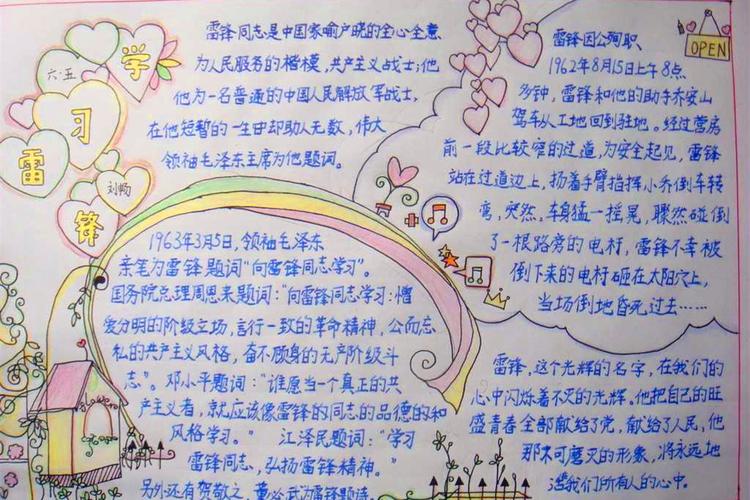 学习雷锋
六·五
刘畅
雷锋同志是中国家喻户晓的全心全意
为人民服务的楷模，共产主义战士；他
作为一名普通的中国人民解放军战士，
在他短暂的一生中却助人无数，伟大
领袖毛泽东主席为他题词。
1963年3月5日，领袖毛泽东
亲笔为雷锋题词“向雷锋同志学习”。
国务院总理周恩来题词：“向雷锋同志学习：憎
爱分明的阶级立场，言行一致的革命精神，公而忘
私的共产主义风格，奋不顾身的无产阶级斗
志”。邓小平题词：“谁愿当一个真正的共
产主义者，就应该像雷锋的同志的品德的和
风格学习。” 江泽民题词：“学习
雷锋同志，弘扬雷锋精神。”
另外还有贺敬之、董必武为雷锋题诗
OPEN
雷锋因公殉职
1962年8月15日上午8点
多钟，雷锋和他的助手乔安山
驾车从工地回到驻地。经过营房
前一段比较窄的过道，为安全起见，雷锋
站在过道边上，扬着手臂指挥小乔倒车转
弯，突然，车身猛一摇晃，骤然碰倒
了一根路旁的电杆，雷锋不幸被
倒下来的电杆砸在太阳穴上，
当场倒地昏死过去……
雷锋，这个光辉的名字，在我们的
心中闪烁着不灭的光辉。他把自己的旺
盛青春全部献给了党，献给了人民，他
那不可磨灭的形象，将永远地
活我们所有人的心中。